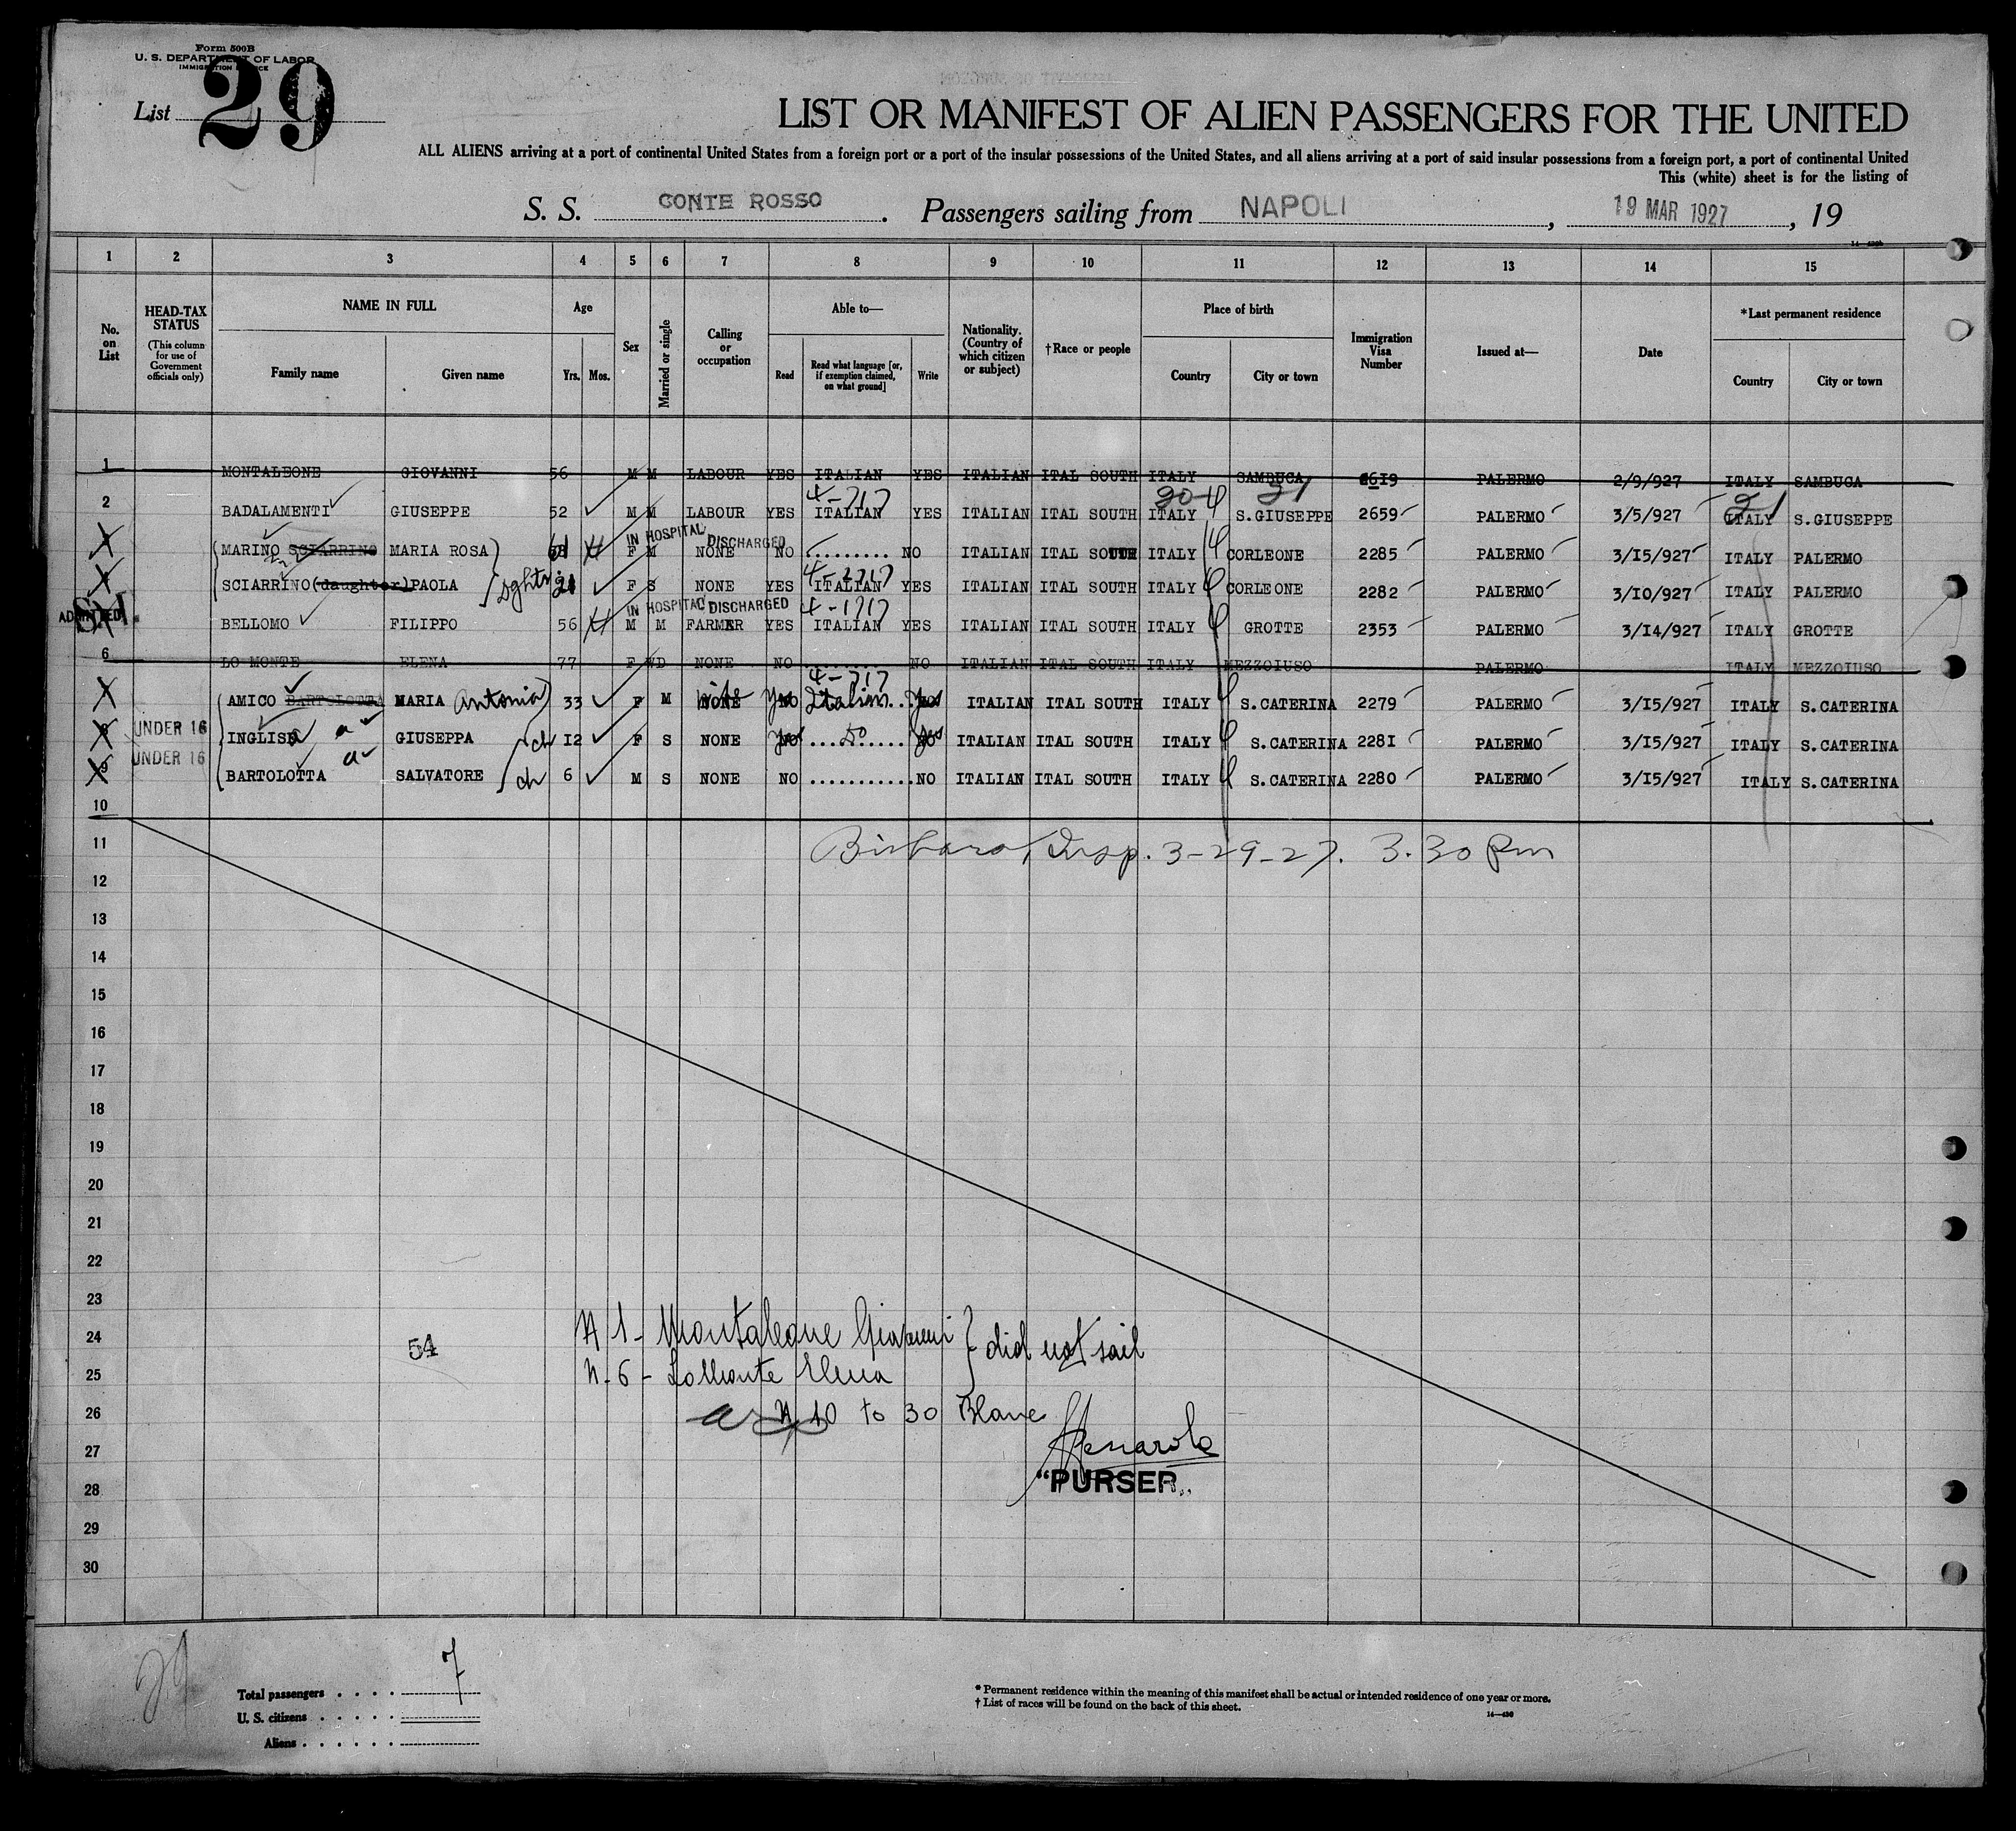 Form 500B
U. S. DEPARTMENT OF LABOR
IMMIGRATION SERVICE
List 29
LIST OR MANIFEST OF ALIEN PASSENGERS FOR THE UNITED
ALL ALIENS arriving at a port of continental United States from a foreign port or a port of the insular possessions of the United States, and all aliens arriving at a port of said insular possessions from a foreign port, a port of continental United
This (white) sheet is for the listing of
S. S. CONTE ROSSO . Passengers sailing from NAPOLI , 19 MAR 1927 , 19
1 2 3 4 5 6 7 8 9 10 11 12 13 14 15
No. on List
HEAD-TAX STATUS (This column for use of Government officials only)
NAME IN FULL
Family name Given name
Age
Yrs. Mos.
Sex
Married or single
Calling or occupation
Able to—
Read Read what language [or, if exemption claimed, on what ground] Write
Nationality. (Country of which citizen or subject)
†Race or people
Place of birth
Country City or town
Immigration Visa Number
Issued at—
Date
*Last permanent residence
Country City or town
1 MONTALEONE GIOVANNI 56 M M LABOUR YES ITALIAN YES ITALIAN ITAL SOUTH ITALY SAMBUCA 2619 PALERMO 2/9/927 ITALY SAMBUCA
2 BADALAMENTI GIUSEPPE 52 M M LABOUR YES ITALIAN YES ITALIAN ITAL SOUTH ITALY S.GIUSEPPE 2659 PALERMO 3/5/927 ITALY S.GIUSEPPE
IN HOSPITAL DISCHARGED
MARINO SCIARRINO MARIA ROSA F M NONE NO ......... NO ITALIAN ITAL SOUTH ITALY CORLEONE 2285 PALERMO 3/15/927 ITALY PALERMO
SCIARRINO (daughter) PAOLA 21 F S NONE YES ITALIAN YES ITALIAN ITAL SOUTH ITALY CORLEONE 2282 PALERMO 3/10/927 ITALY PALERMO
IN HOSPITAL DISCHARGED
ADMITTED
BELLOMO FILIPPO 56 M M FARMER YES ITALIAN YES ITALIAN ITAL SOUTH ITALY GROTTE 2353 PALERMO 3/14/927 ITALY GROTTE
6 LO MONTE ELENA 77 F WD NONE NO ......... NO ITALIAN ITAL SOUTH ITALY MEZZOIUSO PALERMO ITALY MEZZOIUSO
AMICO BARTOLOTTA MARIA Antonia 33 F M NONE wife NO Yes Italian NO Yes ITALIAN ITAL SOUTH ITALY S.CATERINA 2279 PALERMO 3/15/927 ITALY S.CATERINA
8 UNDER 16 INGLISA GIUSEPPA ch 12 F S NONE NO Yes do NO Yes ITALIAN ITAL SOUTH ITALY S.CATERINA 2281 PALERMO 3/15/927 ITALY S.CATERINA
9 UNDER 16 BARTOLOTTA SALVATORE ch 6 M S NONE NO ........... NO ITALIAN ITAL SOUTH ITALY S.CATERINA 2280 PALERMO 3/15/927 ITALY S.CATERINA
10
11 Insp. 3-29-27. 3.30 Pm
12
13
14
15
16
17
18
19
20
21
22
23
24 54 N 1 - Montaleone Giovanni } did not sail
25 N. 6 - Lo Monte Elena
26 N 10 to 30 Blanc
27
28 "PURSER"
29
30
29
Total passengers . . . . 7
U. S. citizens . . . . .
Aliens . . . . . .
* Permanent residence within the meaning of this manifest shall be actual or intended residence of one year or more.
† List of races will be found on the back of this sheet.
14—430